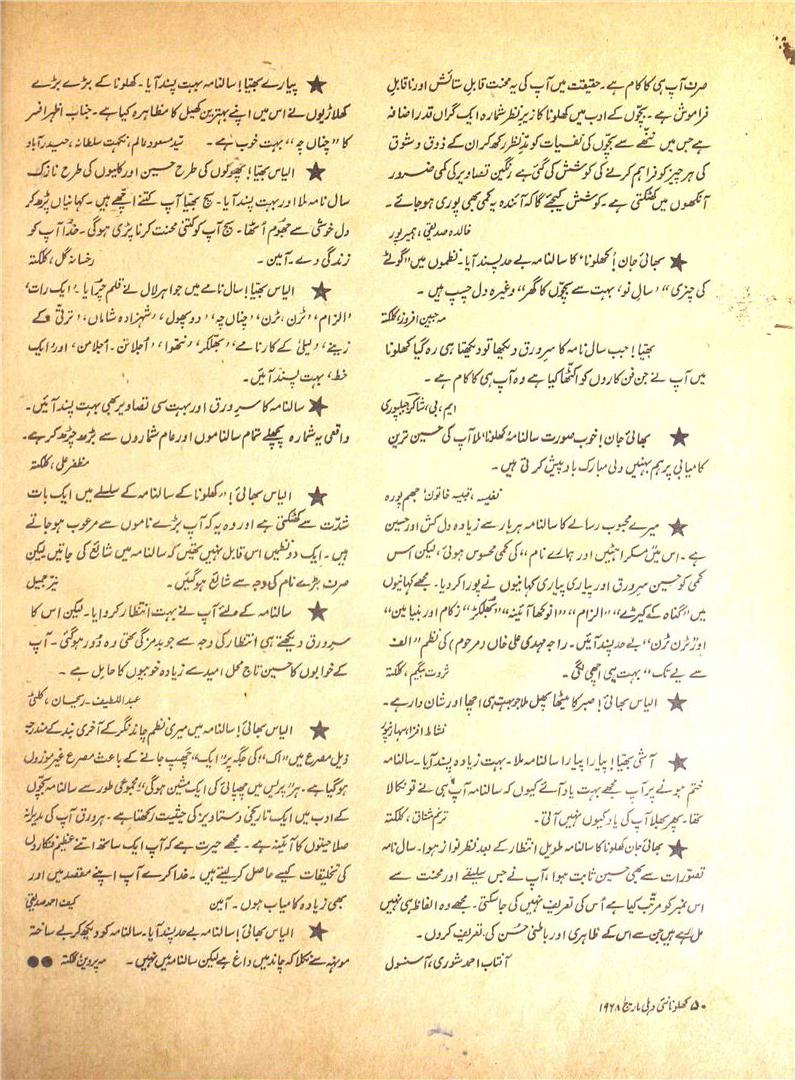 صرف آپ ہی کا کام ہے۔ حقیقت میں آپ کی یہ محنت قابلِ ستائش اور ناقابلِ
فراموش ہے۔ بچّوں کے ادب میں کھلونا کا زیرِ نظر شمارہ ایک گراں قدر اضافہ
ہے جس میں ننّھے سے بچّوں کی نفسیات کو مدِّنظر رکھ کر ان کے ذوق و شوق
کی ہر چیز کو فراہم کرنے کی کوشش کی گئی ہے رنگین تصاویر کی کمی ضرور
آنکھوں میں کھٹکتی ہے۔ کوشش کیجئے گا کہ آئندہ یہ کمی بھی پوری ہو جائے۔
خالدہ صدیقی، ہمیرپور
★ بھائی جان! کھلونا، کا سالنامہ بے حد پسند آیا۔ نظموں میں "گوٹے
کی چنری" "سالِ نو، بہت سے بچّوں کا گھر" وغیرہ دل چسپ ہیں۔
مہ جبین افروز، کلکتہ
بھیّا! جب سال نامہ کا سرورق دیکھا تو دیکھتا ہی رہ گیا کھلونا
میں آپ نے جن فن کاروں کو اکٹھا کیا ہے وہ آپ ہی کا کام ہے۔
ایم، بی، شاکر جبلپوری
★ بھائی جان! خوب صورت سالنامۂ کھلونا، ملا آپ کی حسین ترین
کامیابی پر ہم بہنیں دلی مبارک باد پیش کرتی ہیں۔
نفیسہ، نجیبہ خاتون،
★ میرے محبوب رسالے کا سالنامہ ہر بار سے زیادہ دل کش اور حسین
ہے۔ اس میں مسکراہٹیں اور ہمارے نام" کی کمی محسوس ہوئی، لیکن اس
کمی کو حسین سرورق اور پیاری پیاری کہانیوں نے پورا کر دیا۔ مجھے کہانیوں
میں "گناہ کے کیڑے" "الزام" "انوکھا آئینہ" "بھلکڑ" زکام اور بنیامین"
اور ٹرن ٹرن" بے حد پسند آئیں۔ راجہ مہدی علی خاں (مرحوم) کی نظم "الف
سے بے تک" بہت ہی اچھی لگی۔ ثروت بیگم، کلکتہ
★ الیاس بھائی! صبر کا میٹھا پھل ملا جو بہت ہی اچھا اور شان دار ہے۔
نشاط افزا، سہارنپور
★ آشی بھیّا! پیارا پیارا سالنامہ ملا۔ بہت زیادہ پسند آیا۔ سالنامہ
ختم ہونے پر آپ مجھے بہت یاد آئے کیوں کہ سالنامہ آپ ہی نے تو نکالا
تھا۔ پھر بھلا آپ کی یاد کیوں نہیں آتی۔ ترنم مشتاق، کلکتہ
★ بھائی جان کھلونا کا سالنامہ طویل انتظار کے بعد نظر نواز ہوا۔ سال نامہ
تصوّرات سے بھی حسین ثابت ہوا، آپ نے جس سلیقے اور محنت سے
اس نمبر کو مرتّب کیا ہے اُس کی تعریف نہیں کی جا سکتی۔ مجھے وہ الفاظ ہی نہیں
مل رہے ہیں جن سے اس کے ظاہری اور باطنی حُسن کی، تعریف کروں۔
آفتاب احمد شوری، آسنسول
★ پیارے بھیّا! سالنامہ بہت پسند آیا۔ کھلونا کے بڑے بڑے
کھلاڑیوں نے اس میں اپنے بہترین کھیل کا مظاہرہ کیا ہے۔ جناب اظہر افسر
کا "چناں چہ" بہت خوب ہے۔ سیّد مسعود عالم، نگہت سلطانہ، حیدرآباد
★ الیاس بھیّا! پھولوں کی طرح حسین اور کلیوں کی طرح نازک
سال نامہ ملا اور بہت پسند آیا۔ سچ بھیّا آپ کتنے اچھے ہیں۔ کہانیاں پڑھ کر
دل خوشی سے جھوم اُٹھا۔ سچ آپ کو کتنی محنت کرنا پڑی ہوگی۔ خدا آپ کو
زندگی دے۔ آمین۔ رخسانہ گل، کلکتہ
★ الیاس بھیّا! سال نامے میں جواہر لال نے قلم چرایا۔ 'ایک رات'
'الزام'، 'ٹرن، ٹرن'، 'چناں چہ'، 'دو پھول'، 'شہزادہ شاماں'، 'ترقی کے
زینے'، 'لیلیٰ کے کارنامے'، 'بھلکڑ'، 'نتھوا'، 'اُجلائن۔ اُجلامن'، اور 'ایک
خط'، بہت پسند آئیں۔
★ سالنامہ کا سرورق اور بہت سی تصاویر بھی بہت پسند آئیں۔
واقعی یہ شمارہ پچھلے تمام سالناموں اور عام شماروں سے بڑھ چڑھ کر ہے۔
مظفر علی، کلکتہ
★ الیاس بھائی! "کھلونا کے سالنامہ کے سلسلے میں ایک بات
شدّت سے کھٹکتی ہے اور وہ یہ کہ آپ بڑے ناموں سے مرعوب ہو جاتے
ہیں۔ ایک دو نظمیں اس قابل نہیں تھیں کہ سالنامہ میں شائع کی جاتیں لیکن
صرف بڑے نام کی وجہ سے شائع ہو گئیں۔ نیّر جمیل
★ سالنامہ کے لئے آپ نے بہت انتظار کروایا۔ لیکن اس کا
سرورق دیکھتے ہی انتظار کی وجہ سے جو بدمزگی تھی وہ دُور ہوگئی۔ آپ
کے خوابوں کا حسین تاج محل امید سے زیادہ خوبیوں کا حامل ہے۔
عبداللطیف۔ ریحسان،
★ الیاس بھائی! سالنامہ میں میری نظم چاند نگر کے آخری بند کے مندرجہ
ذیل مصرع میں "اک" کی جگہ پر "ایک" چھپ جانے کے باعث مصرع غیر موزوں
ہوگیا ہے۔ ہر "پریس میں چھپائی کی ایک مشین ہوگی" مجموعی طور سے سالنامہ بچّوں
کے ادب میں ایک تاریخی دستاویز کی حیثیت رکھتا ہے۔ ہر ورق آپ کی مدیرانہ
صلاحیتوں کا آئینہ ہے۔ مجھے حیرت ہے کہ آپ ایک ساتھ اتنے عظیم فنکاروں
کی تخلیقات کیسے حاصل کر لیتے ہیں۔ خدا کرے آپ اپنے مقصد میں اور
بھی زیادہ کامیاب ہوں۔ آمین کیف احمد صدیقی
★ الیاس بھائی! سالنامہ بے حد پسند آیا۔ سالنامہ کو دیکھ کر بے ساختہ
مونہہ سے نکلا کہ چاند میں داغ ہے لیکن سالنامہ میں نہیں۔ مہ پروین کلکتہ ●●
۵۰ کھلونا نئی دہلی مارچ ۱۹۶۸